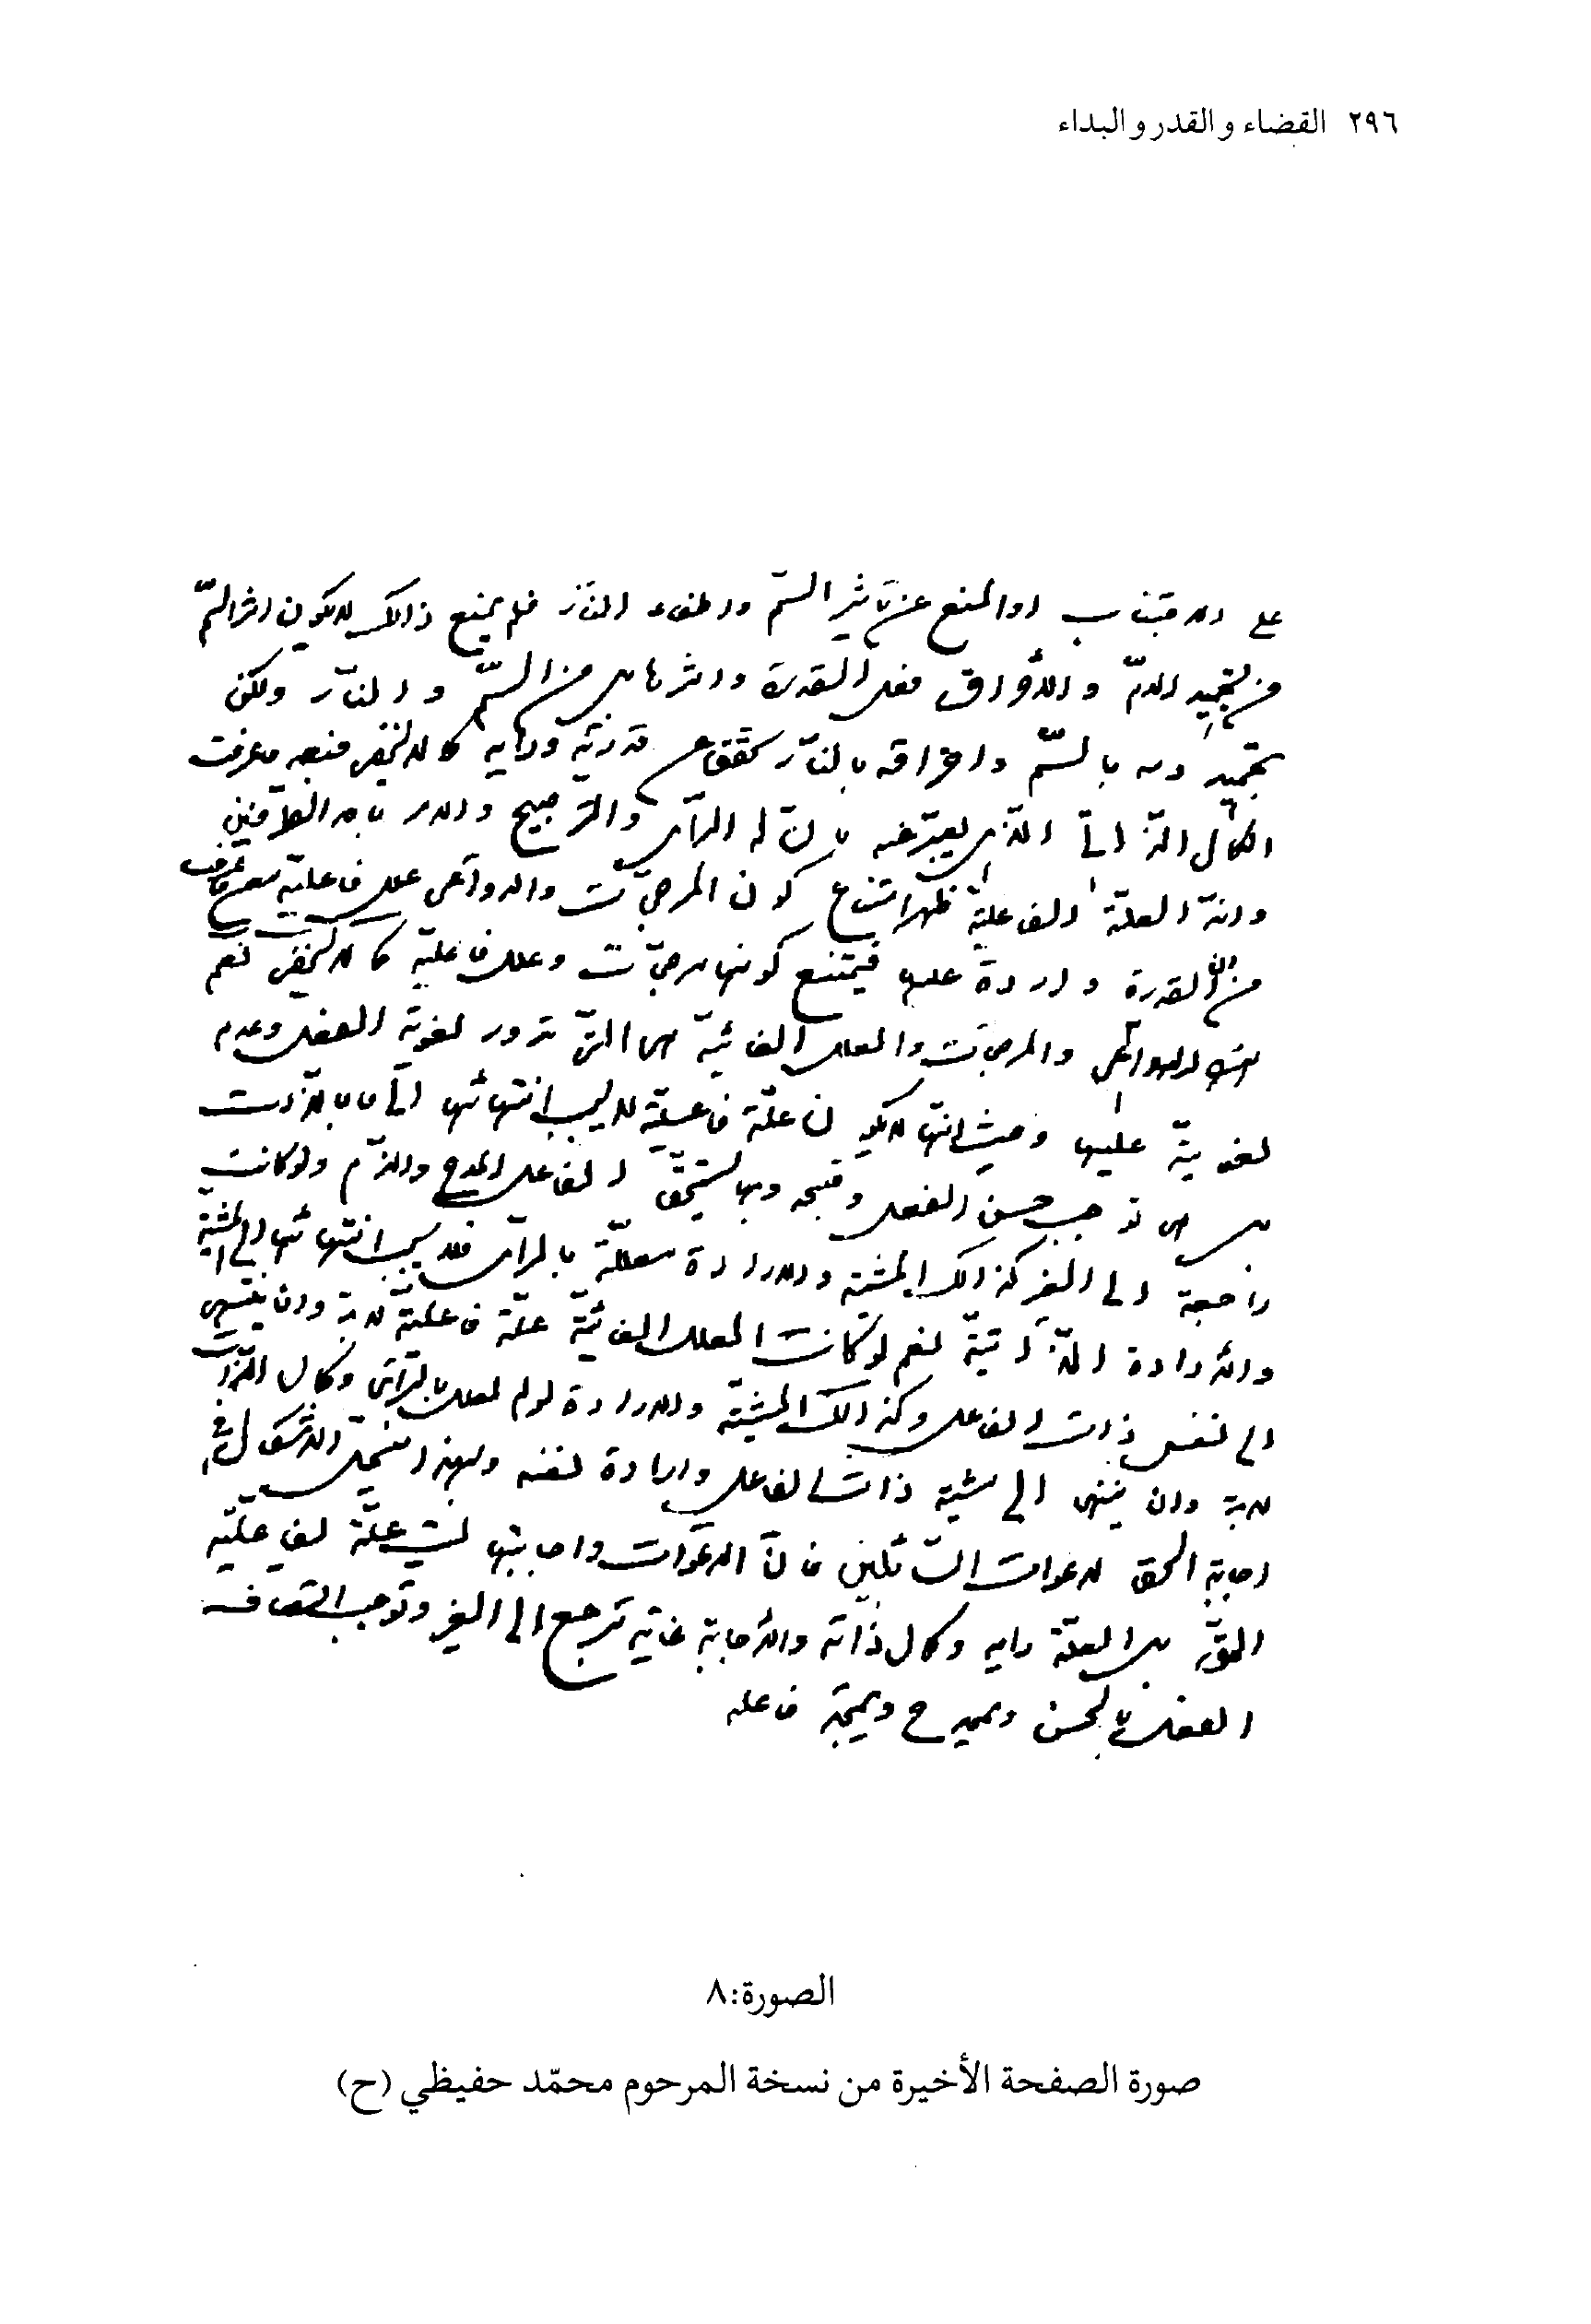 ٢٩٦ القضاء والقدر والبداء
على الاجتناب او المنع عن تاثير السّم واطفاء النّار فلم يمنع ذالك لايكون اثر السّم
من تجميد الدّم والاحراق فعل القدرة واثرها بل من السّم والنّار ولكن
تجميد دمه بالسّم واحراقه بالنّار كقطع قدرتيّه ورايه كما لايخفى فبعد ماعرفت
الكمال الذّاتىّ الذّى يعبّر عنه بانّ له الرّأى والتّرجيح والامر باحد الطّرفين
وانّه العلّة الفاعليّة ظهر امتناع كون المرجّحات والدواعى علل فاعليّة
من القدرة واردة عليها فيمتنع كونها مرجّحات وعلل فاعليّة كما لايخفى نعم
الدواعى والمرجّحات والعلل الغائيّة هى الّتى تدور لغويّة الفعل وعدم
لغويّة عليها وحيث انّها لايكون علّة فاعليّة لايجب انتهائها الى ما بالذّات
بل هى توجب حسن الفعل وقبحه وبها يستحقّ الفاعل المدح والذّم ولو كانت
راجعة الى الغير كذالك المشيّة والارادة معلّلة بالرّأى فلا يجب انتهائها الى المشيّة
والارادة الذّاتيّة نعم لو كانت العلل الغائيّة علّة فاعليّة لابدّ وان ينتهى
الى نفس ذات الفاعل وكذالك المشيّة والارادة لو لم تعلل بالرّأى وكمال الذّات
لابدّ وان ينتهى الى مشيّة ذات الفاعل وارادة نفسه وبهذا ينحلّ الاشكال فى
اجابة الحق لدعوات السّائلين فانّ الدعوات واجابتها ليست علّة لفاعليّة
الحقّ بل العلّة رايه وكمال ذاته والاجابة غاية ترجع الى الغير وتوجب اتّصاف
الفعل بالحسن ويمدح ويمجّد فاعله
الصورة: ٨
صورة الصفحة الأخيرة من نسخة المرحوم محمّد حفيظي (ح)